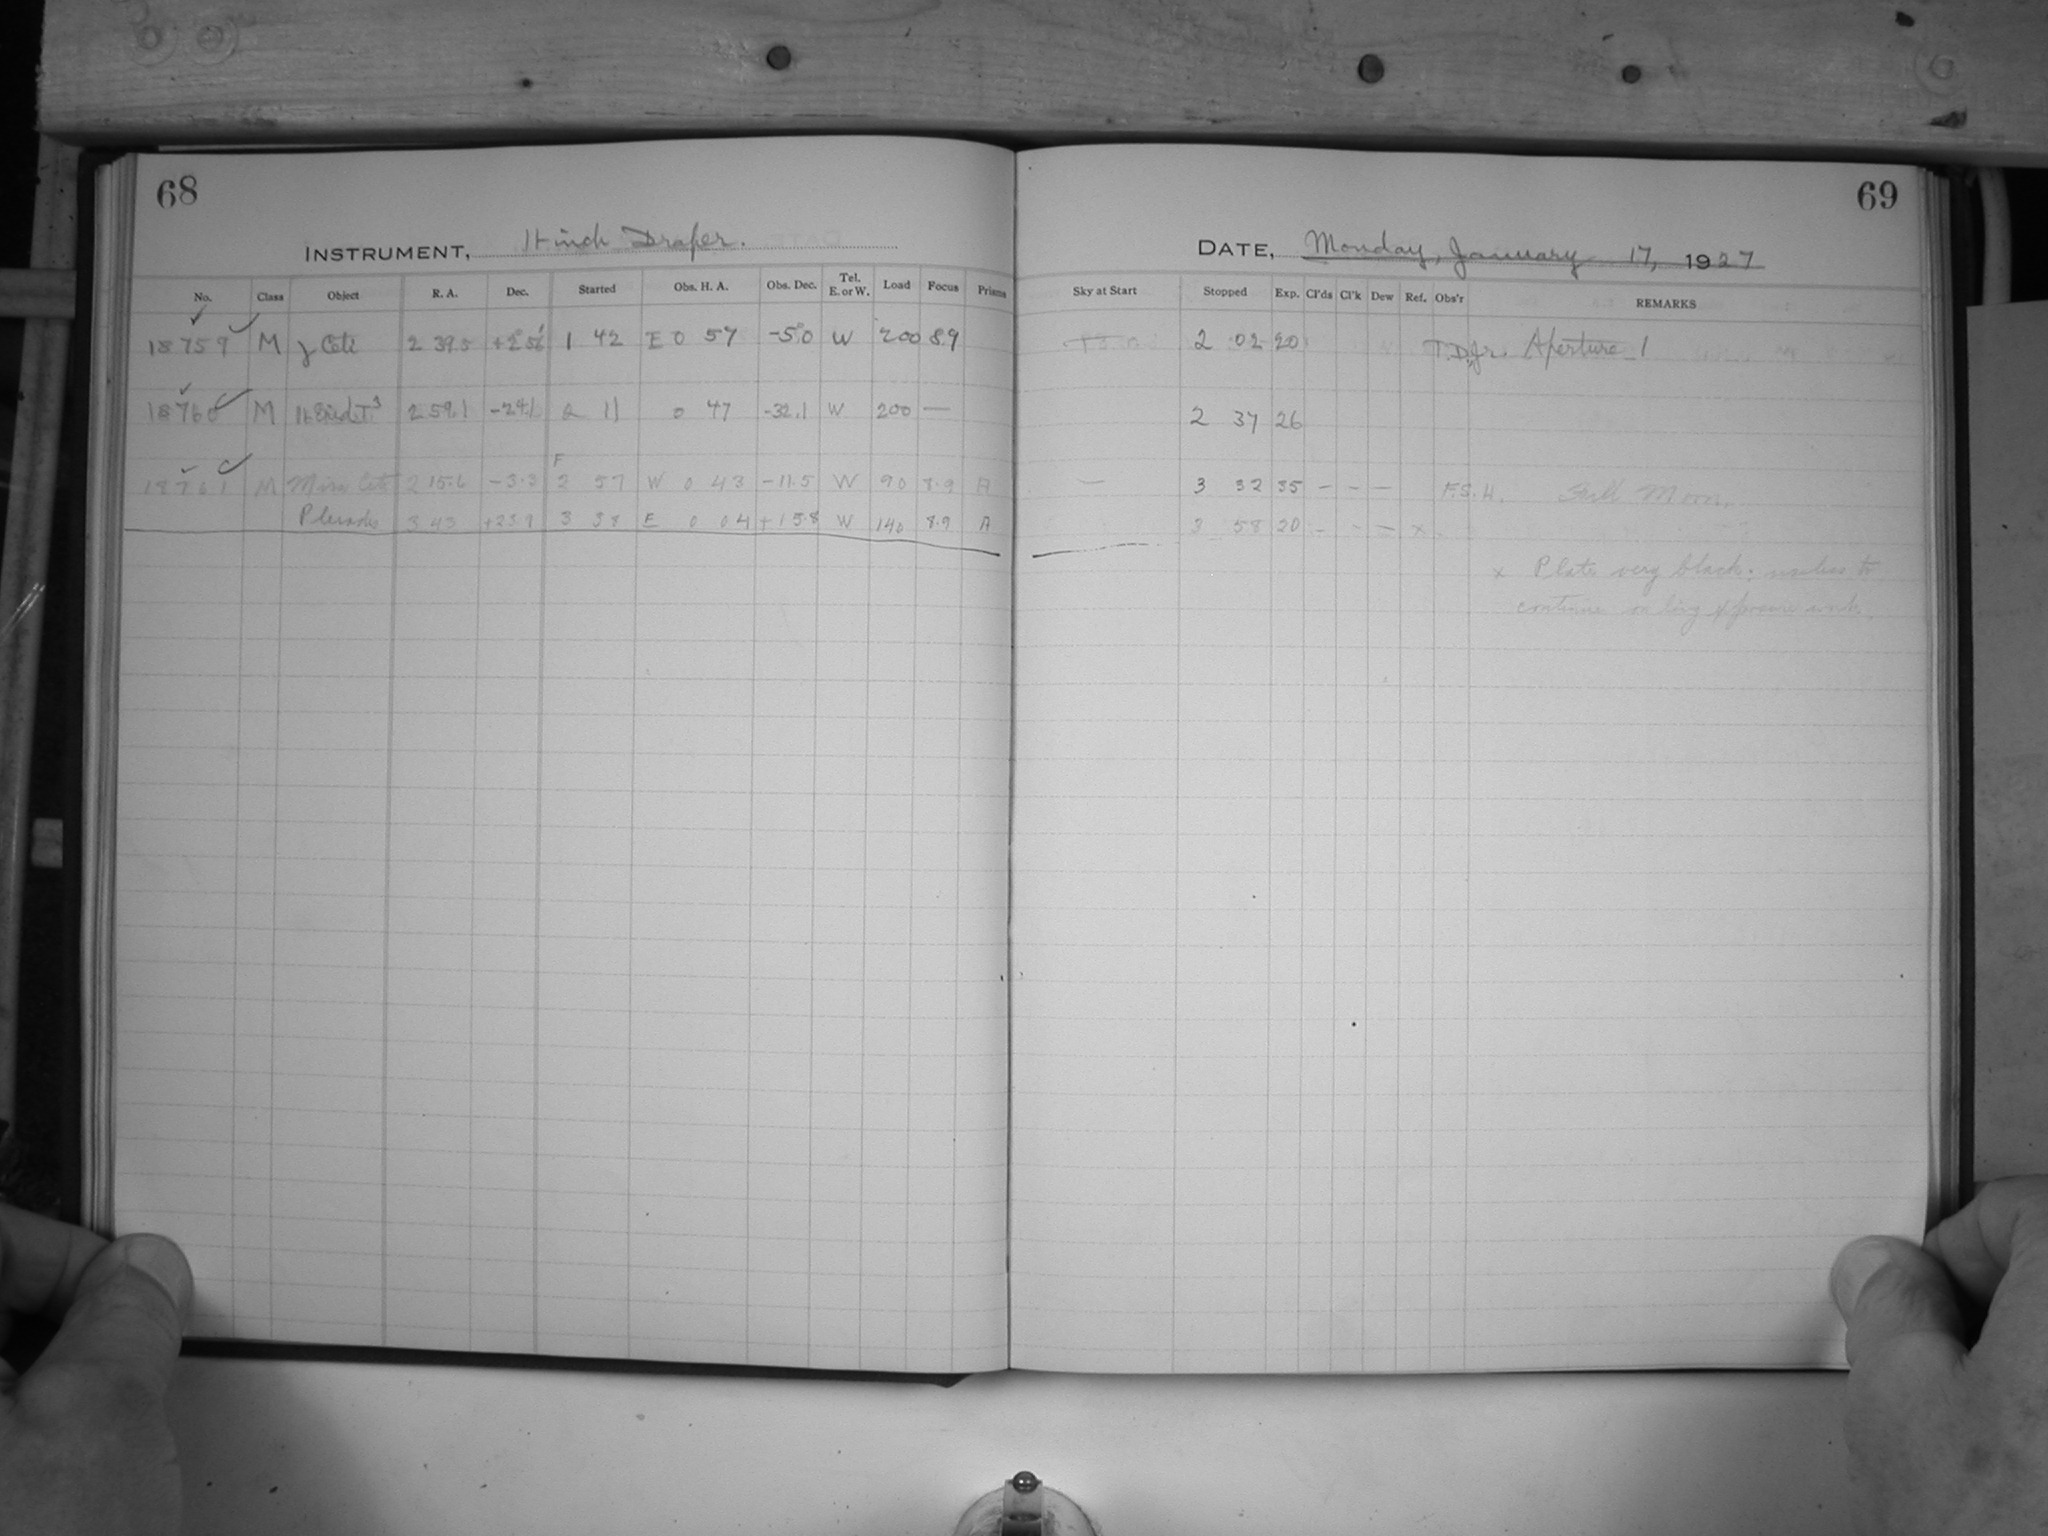 68
INSTRUMENT, 11-inch Draper.
No. Class Object R. A. Dec. Started Obs. H. A. Obs. Dec. Tel. E. or W. Load Focus Prisms
18759 M γ Ceti 2 39.5 +2°56' 1 42 E 0 57 -5°.0 W 200 8.9
18760 M 2 59.1 -24.1 2 11 0 47 -32.1 W 200 —
F
18761 M Mira Ceti 2 15.6 -3.3 2 57 W 0 43 -11.5 W 90 8.9 A
Pleiades 3 43 +23.9 3 38 E 0 04 +15.8 W 140 8.9 A
69
DATE, Monday, January 17, 1927
Sky at Start Stopped Exp. Cl'ds Cl'k Dew Ref. Obs'r REMARKS
2 02 20 T.D.Jr. Aperture 1
2 37 26
— 3 32 35 – – – F.S.H. Full Moon.
3 58 20 – – – x
x Plate very black; useless to
continue on long exposure work.